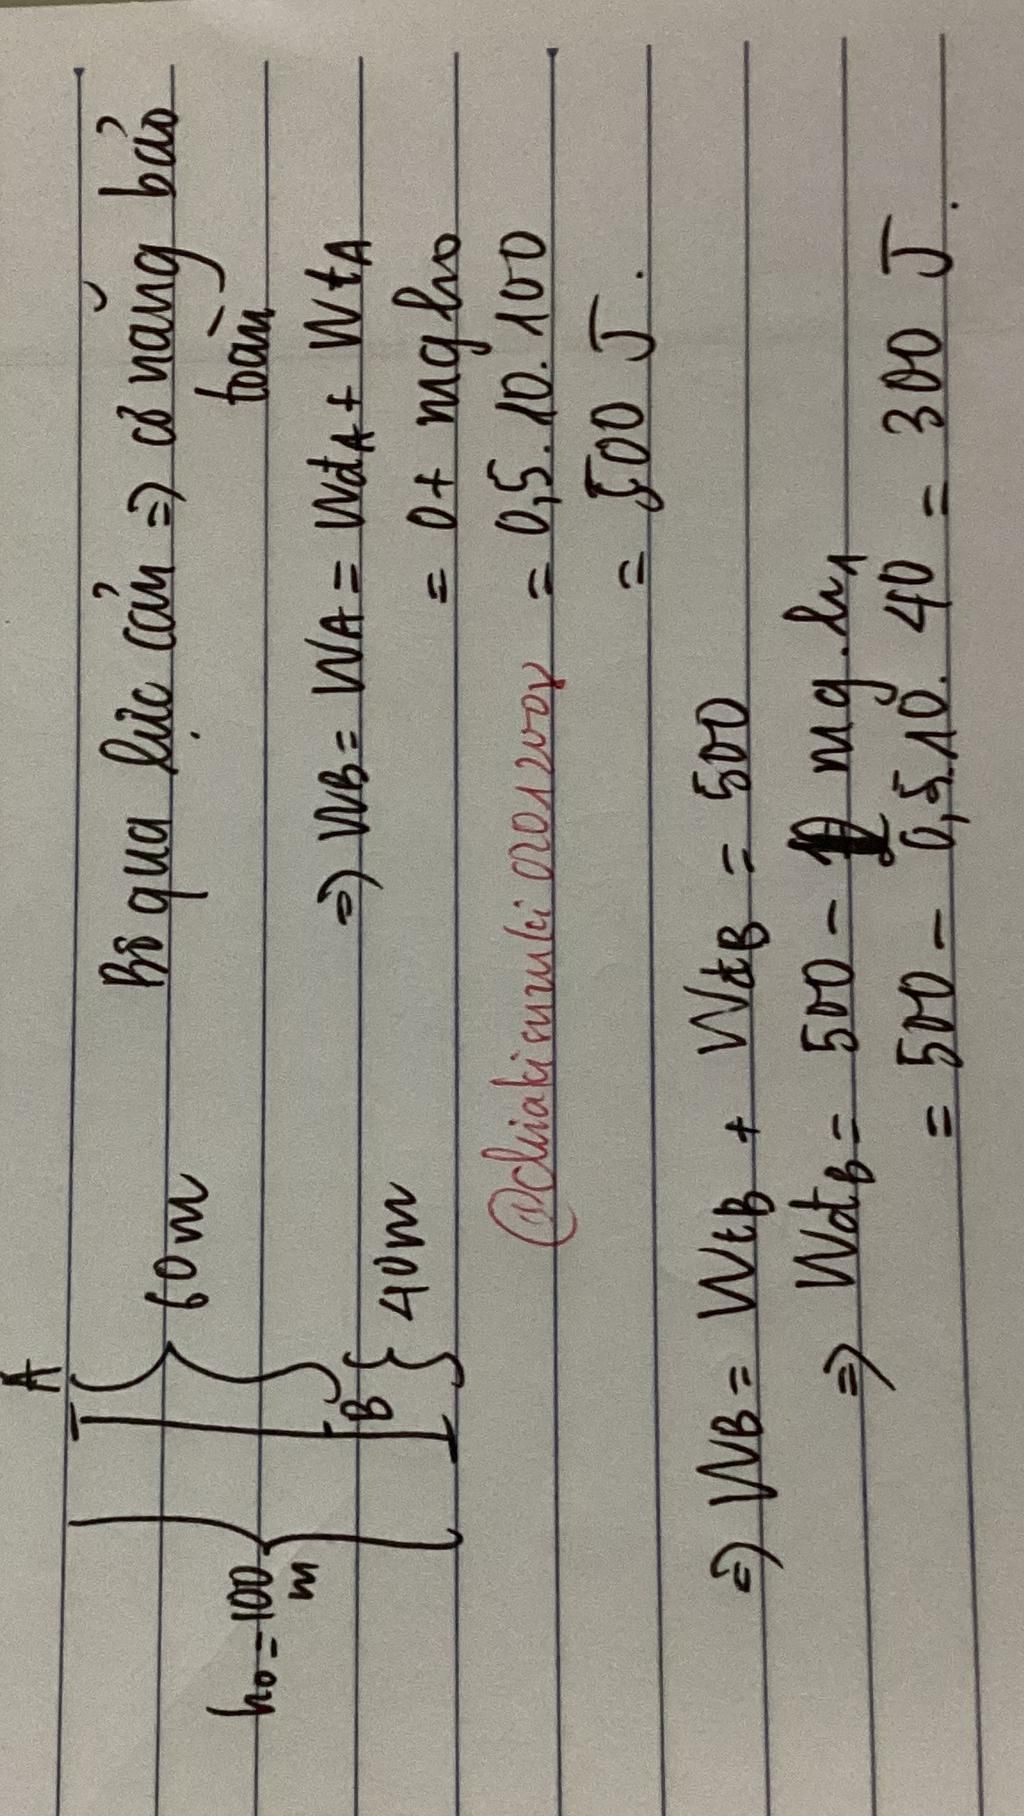 A
h₀ = 100
m
60m
B
40m
Bỏ qua lực cản => cơ năng bảo
toàn
=> WB = WA = WđA + WtA
= 0 + mgh₀
= 0,5.10.100
= 500 J.
@chiakisuzuki02012008
=> WB = WtB + WđB = 500
=> WđB = 500 - mg.h₁
= 500 - 0,5.10.40 = 300 J.